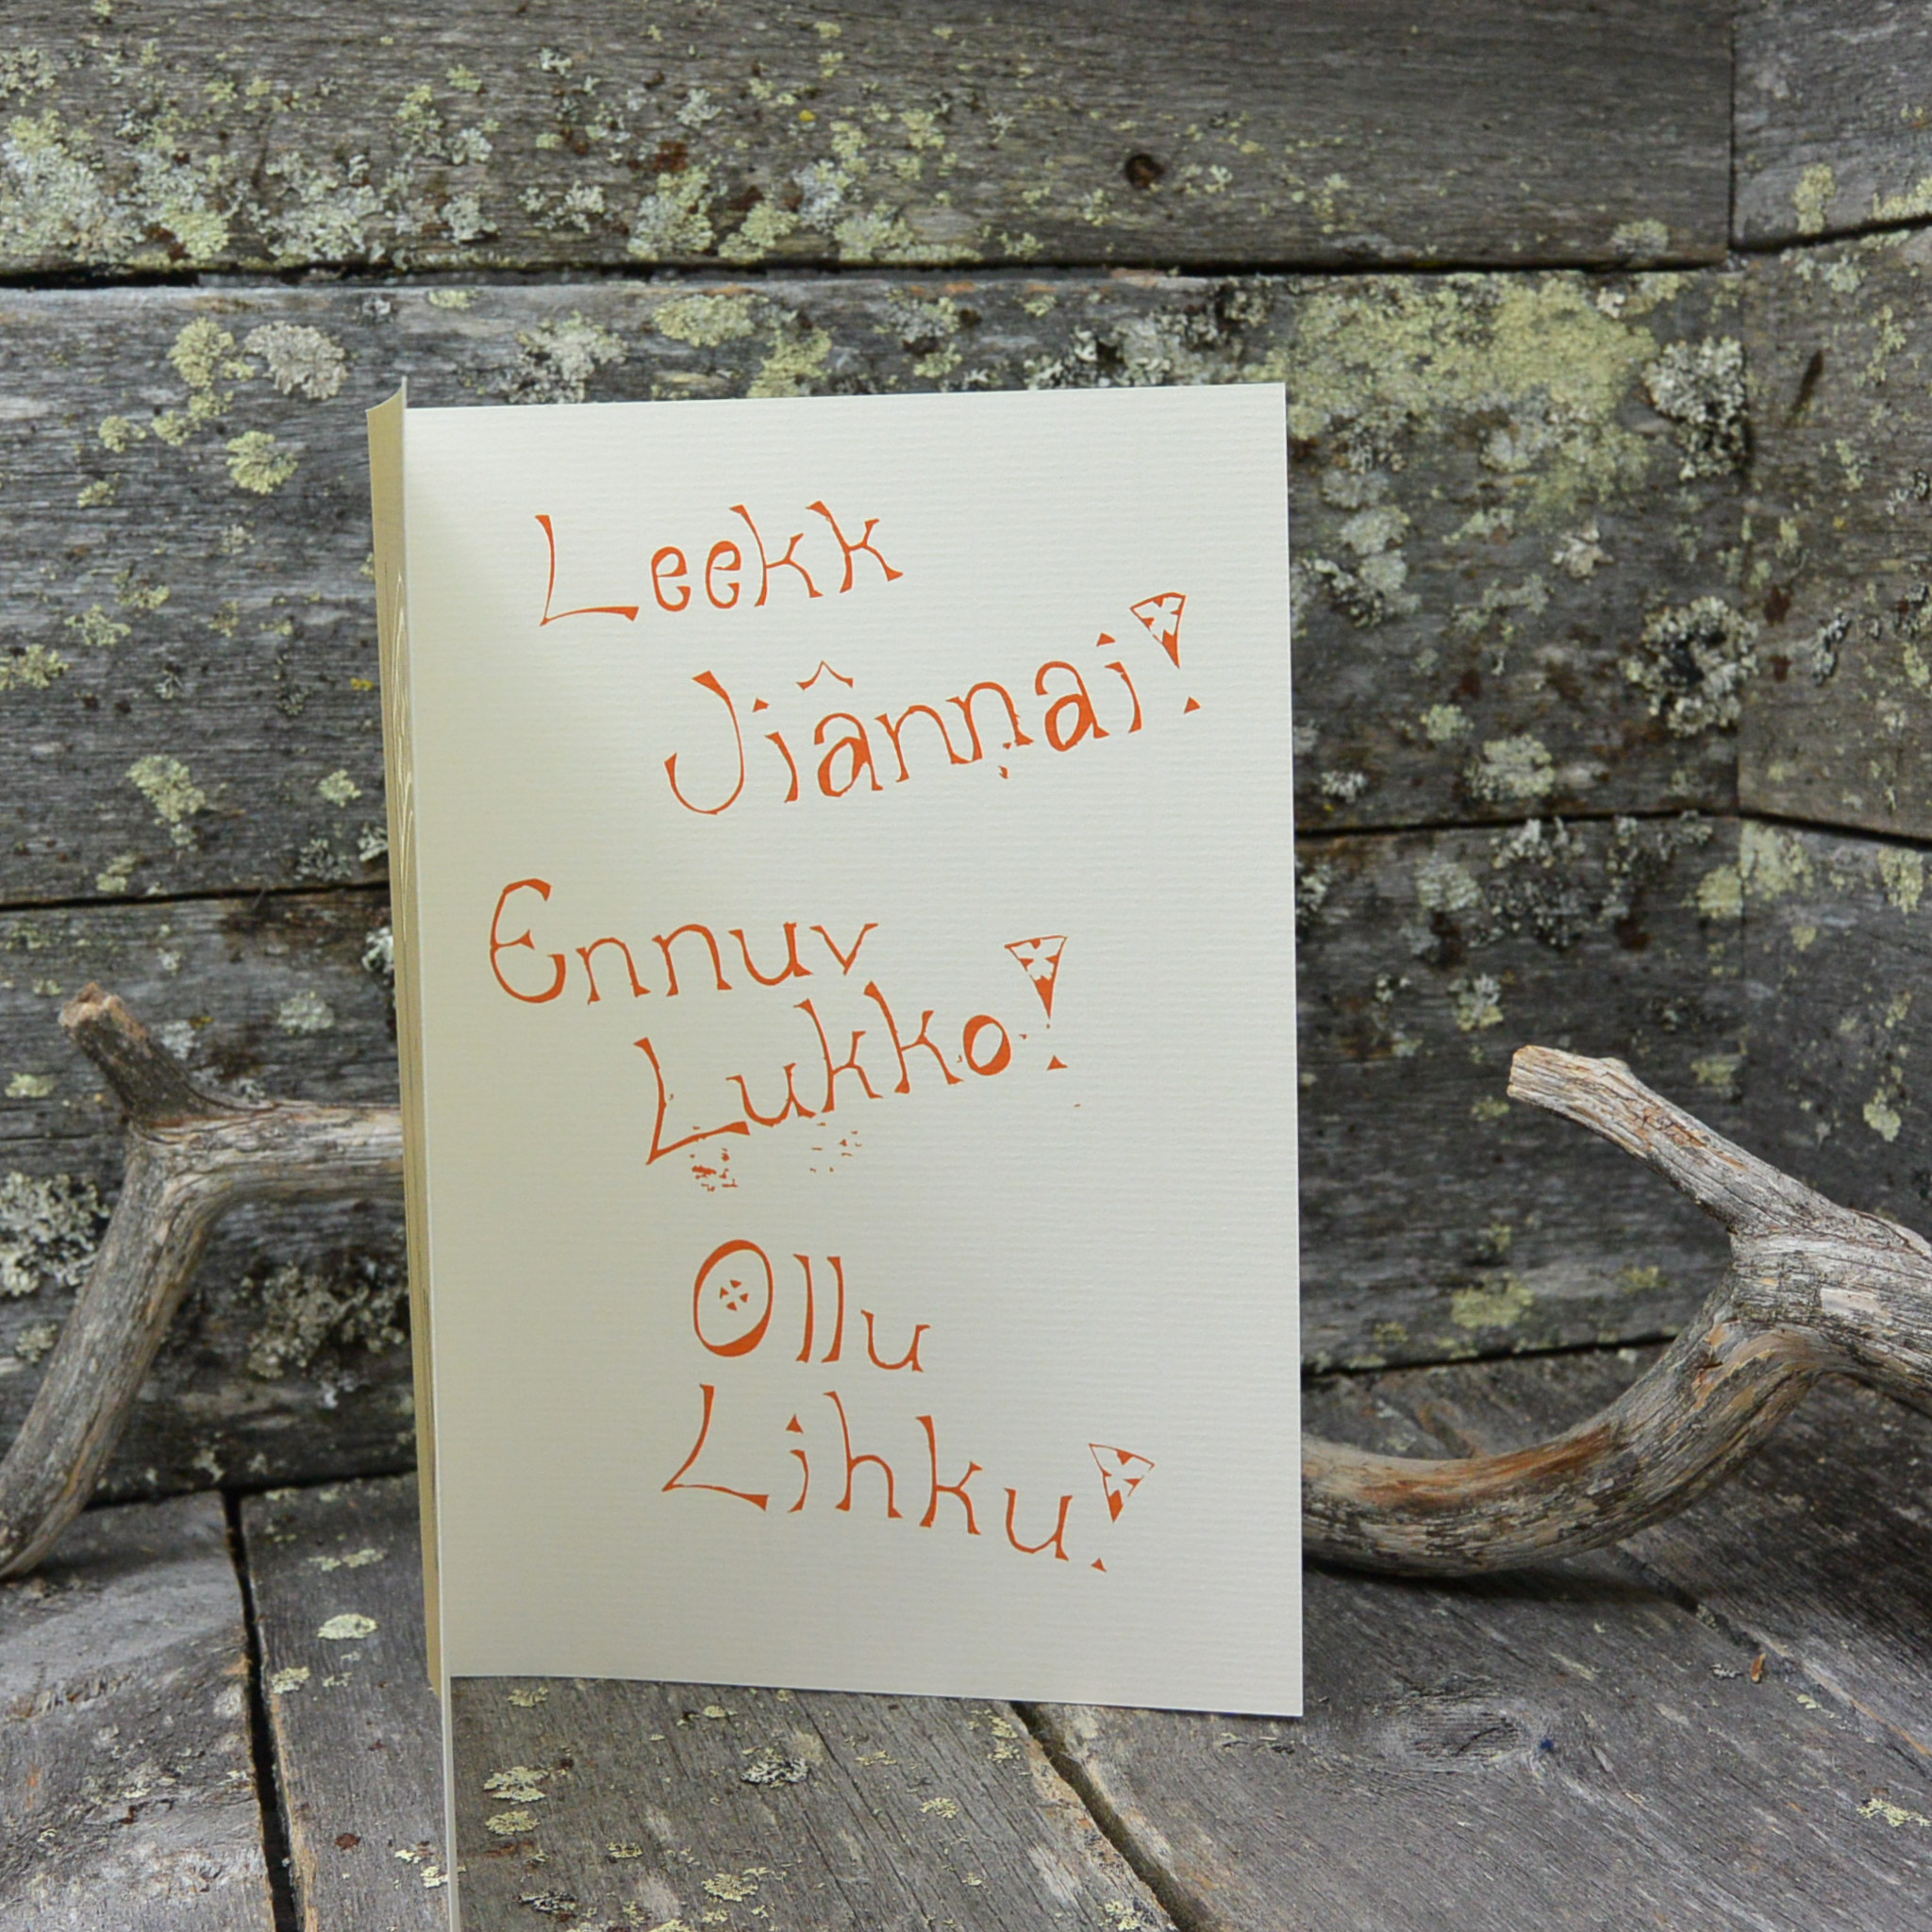 Leekk
Jiânṇai!
Ennuv
Lukko!
Ollu
Lihku!